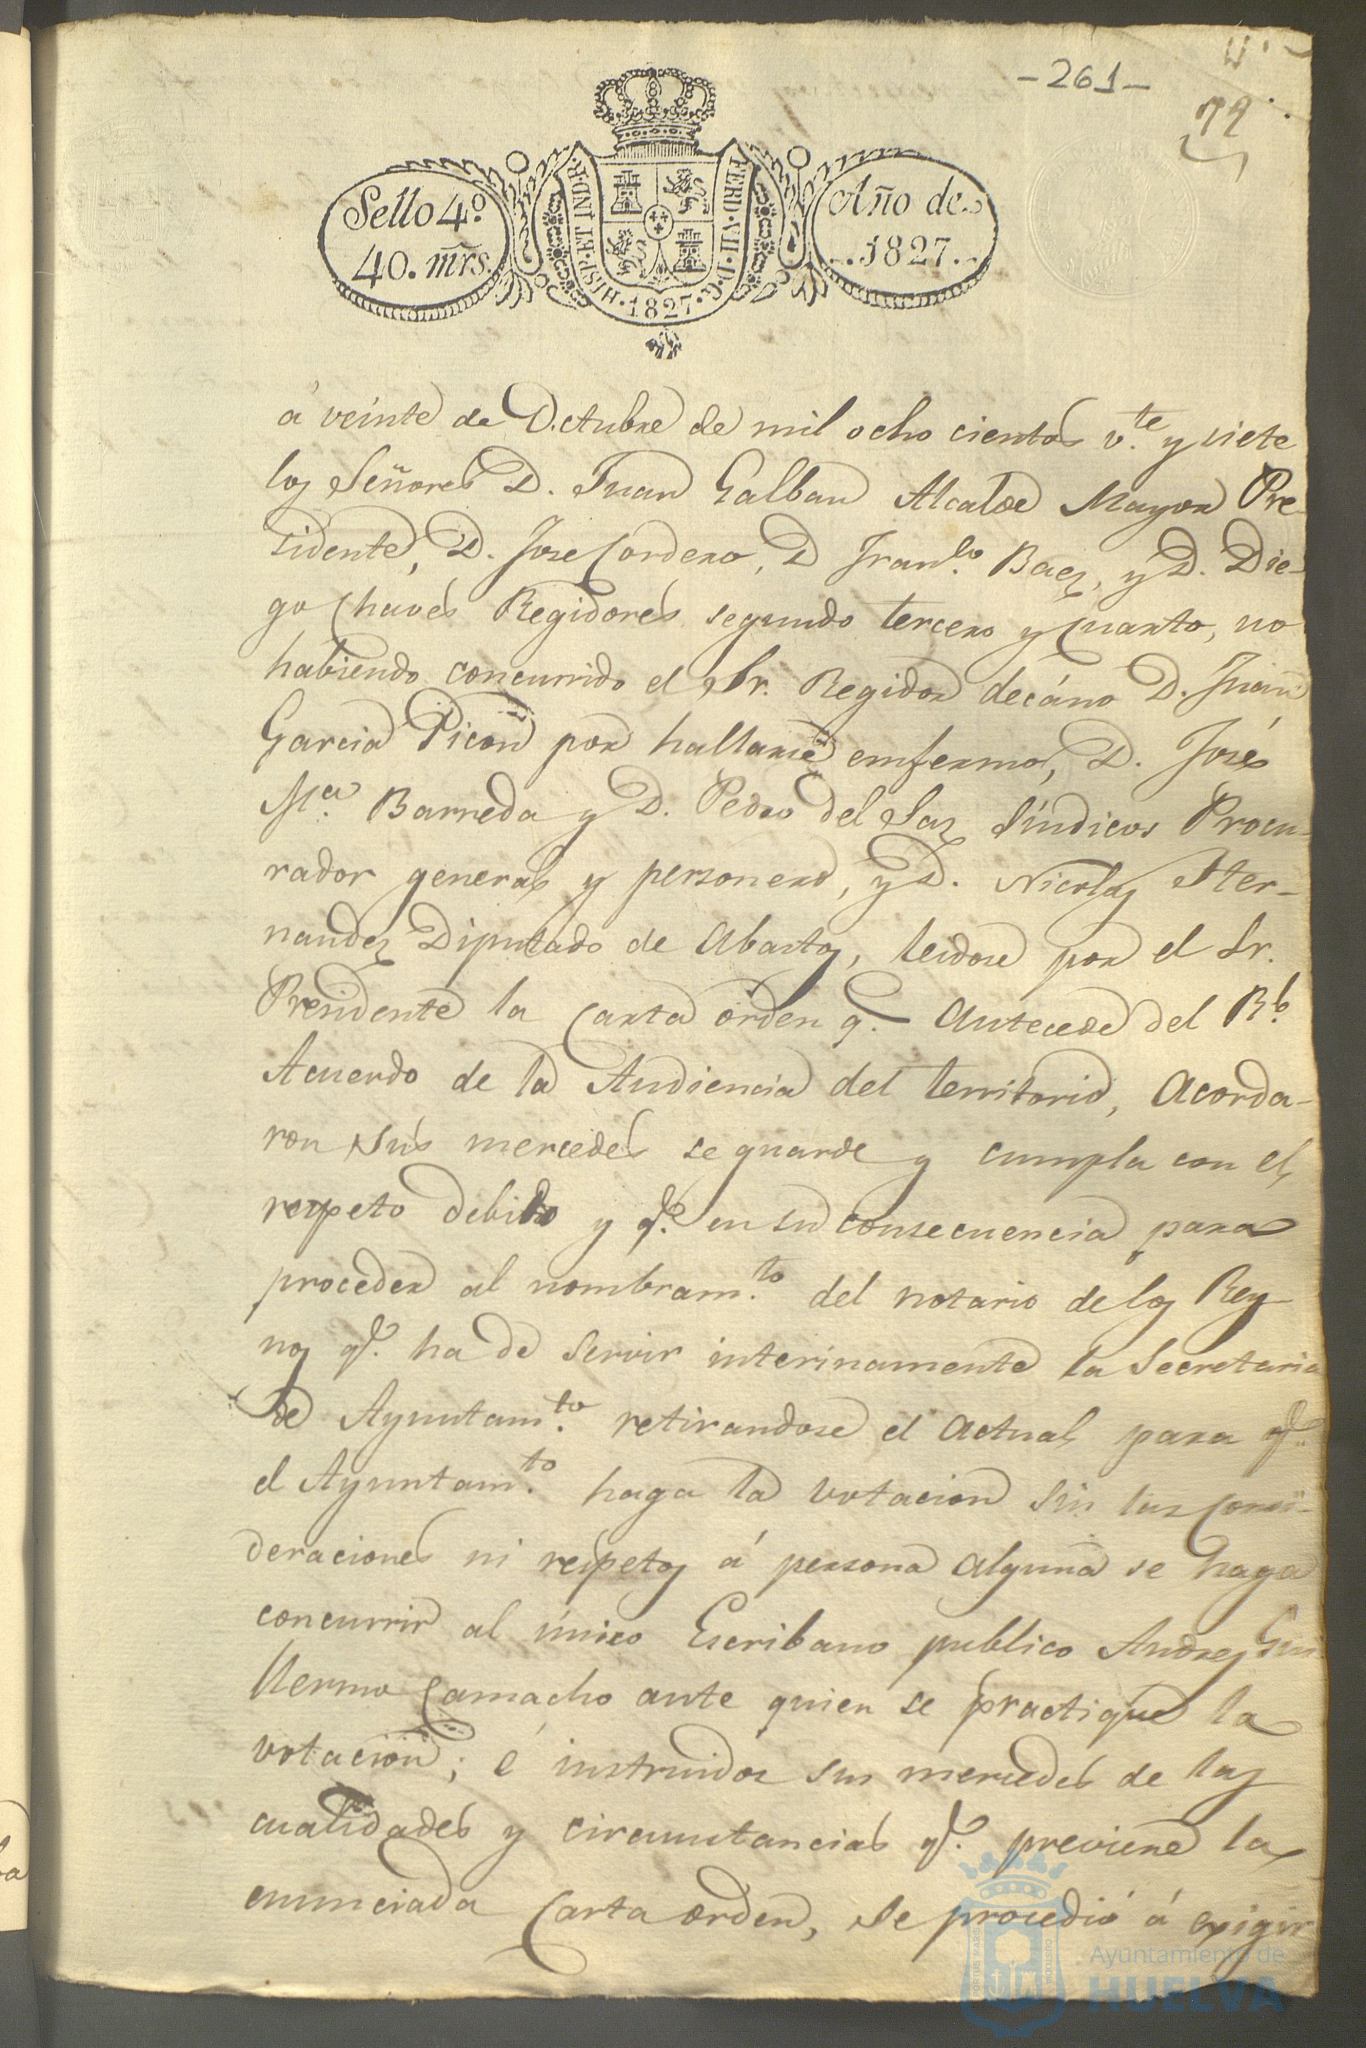 -261-
72
Sello 4º
40. mrs.
HISP. ET IND. R.
FERD. VII. D. G.
.1827.
Año de
.1827.
á veinte de Octubre de mil ocho cientos v.te y siete
los Señores D. Juan Galban Alcalde Mayor Pre-
sidente, D. Jose Cordero, D Fran.co Baez, y D. Die-
go Chaves Regidores segundo tercero y Cuarto, no
habiendo concurrido el Sr. Regidor decáno D. Juan
Garcia Picon por hallarse emfermo, D. José
M.a Barreda y D. Pedro del Saz Síndicos Procu-
rador general y personero, y D. Nicolas Her-
nandez Diputado de Abastos, leidose por el Sr.
Presidente la Carta orden q.e antecede del R.l
Acuerdo de la Audiencia del territorio, Acorda-
ron sus mercedes se guarde y cumpla con el
respeto debido y q.e en su consecuencia para
proceder al nombram.to del notario de los Rey-
nos q.e ha de servir interinamente la Secretaria
de Ayuntam.to retirandose el actual para q.e
el Ayuntam.to haga la votacion sin las consi-
deraciones ni respetos á persona alguna se haga
concurrir al único Escribano publico Andres Gui-
llermo Camacho ante quien se practique la
votacion; é instruidos sus mercedes de las
cualidades y circunstancias q.e previene la
enunciada Carta orden, se procedió á exigir
Ayuntamiento de
HUELVA